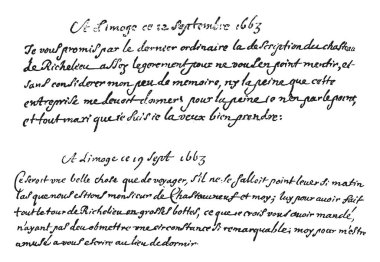 A Limoge ce 22 septembre 1663
Je vous promis par le dernier ordinaire la description du chasteau
de Richelieu assez legerement pour ne vous en point mentir, et
sans considerer mon peu de memoire, ny la peine que cette
entreprise me devoit donner: pour la peine je n'en parle point,
et tout mari que je suis je la veux bien prendre:
A Limoge ce 19 sept 1663
Ce seroit une belle chose que de voyager, s'il ne se falloit point lever si matin
Las que nous estions monsieur de Chasteauneuf et moy; luy pour avoir fait
tout le tour de Richelieu en grosses bottes, ce que je crois vous avoir mandé,
n'ayant pas deu obmettre une circonstance si remarquable; moy pour m'estre
amusé a vous escrire au lieu de dormir